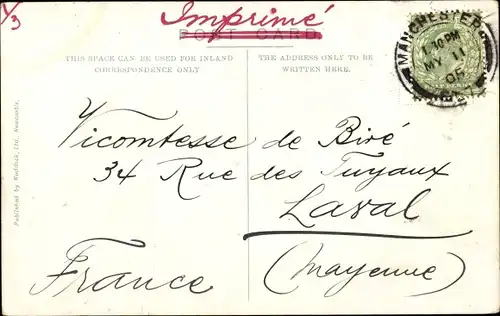 1/3
Imprimé
POST CARD.
THIS SPACE CAN BE USED FOR INLAND CORRESPONDENCE ONLY
THE ADDRESS ONLY TO BE WRITTEN HERE.
MANCHESTER
MY 11
05
Vicomtesse de Biré
34 Rue des Tuyaux
Laval
(Mayenne)
France